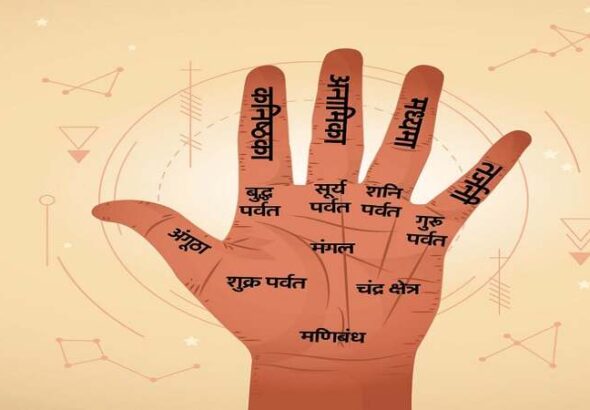 कनिष्ठका
अनामिका
मध्यमा
तर्जनी
बुद्ध
पर्वत
सूर्य
पर्वत
शनि
पर्वत
गुरू
पर्वत
अंगूठा
मंगल
शुक्र पर्वत
चंद्र क्षेत्र
मणिबंध